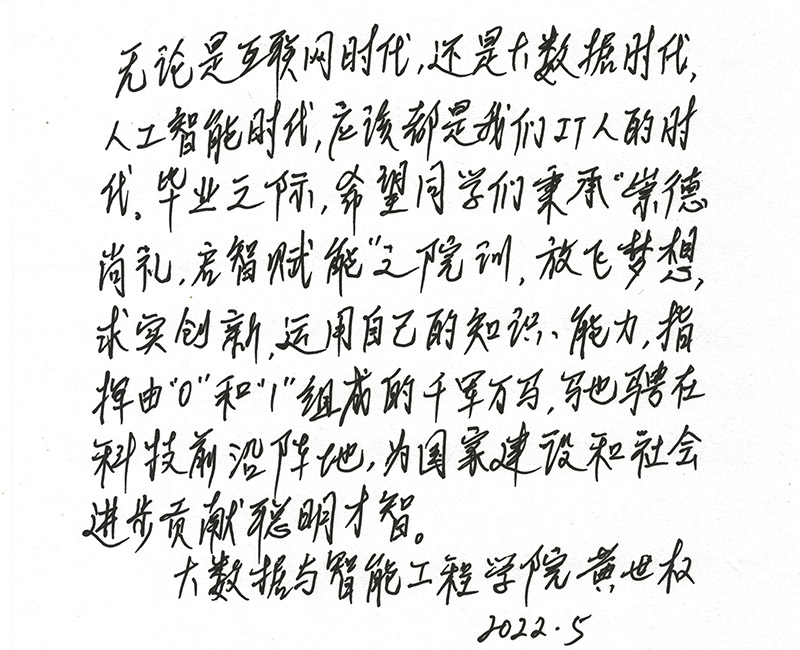 无论是互联网时代,还是大数据时代,
人工智能时代,应该都是我们IT人的时
代。毕业之际,希望同学们秉承“崇德
尚礼,启智赋能”之院训,放飞梦想,
求实创新,运用自己的知识、能力,指
挥由“0”和“1”组成的千军万马,驰骋在
科技前沿阵地,为国家建设和社会
进步贡献聪明才智。
大数据与智能工程学院 黄世权
2022.5